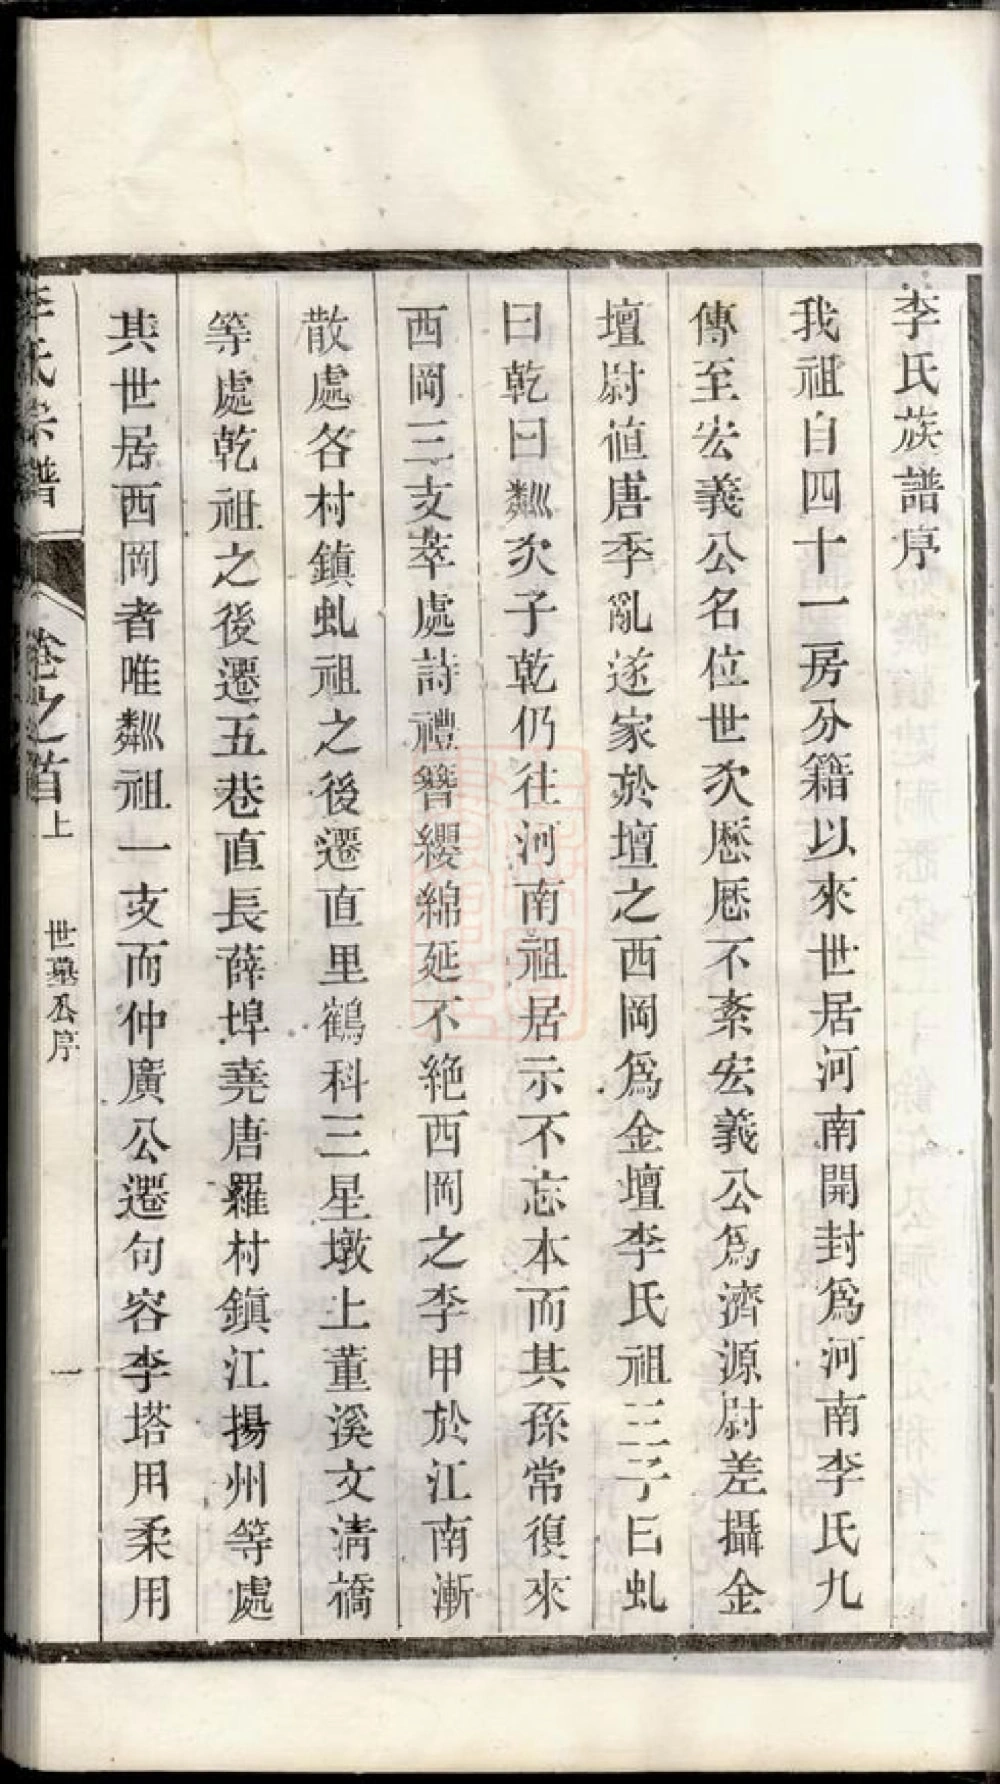 李氏族譜序
我祖自四十一房分籍以來世居河南開封爲河南李氏九
傳至宏義公名位世次厯厯不紊宏義公爲濟源尉差攝金
壇尉值唐季亂遂家於壇之西岡爲金壇李氏祖三子曰虬
曰乾曰粼次子乾仍往河南祖居示不忘本而其孫常復來
西岡三支萃處詩禮簪纓綿延不絶西岡之李甲於江南漸
散處各村鎮虬祖之後遷直里鶴科三星墩上董溪文清橋
等處乾祖之後遷五巷直長薛埠堯唐羅村鎮江揚州等處
其世居西岡者唯粼祖一支而仲廣公遷句容李塔用柔用
李氏宗譜
卷之首上
世墓公序
一